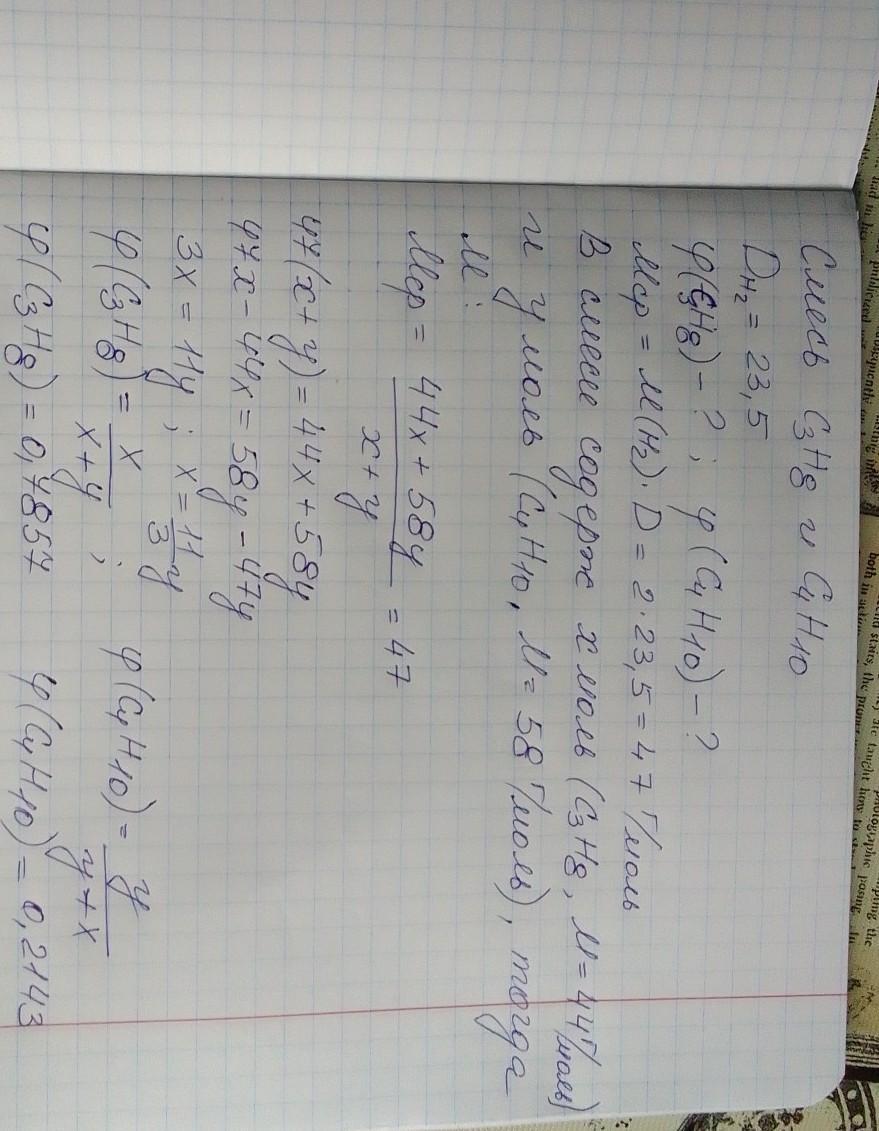 Смесь C3H8 и C4H10
DH2 = 23,5
φ(C3H8) - ? ; φ(C4H10) - ?
Mср = M(H2)·D = 2·23,5 = 47 г/моль
В смеси содерж х моль (C3H8, M = 44 г/моль)
и у моль (C4H10, M = 58 г/моль), тогда
M:
Mср = 44x + 58y / x + y = 47
47(x + y) = 44x + 58y
47x - 44x = 58y - 47y
3x = 11y ; x = 11/3 y
φ(C3H8) = x / x + y ; φ(C4H10) = y / y + x
φ(C3H8) = 0,7857 φ(C4H10) = 0,2143
both in